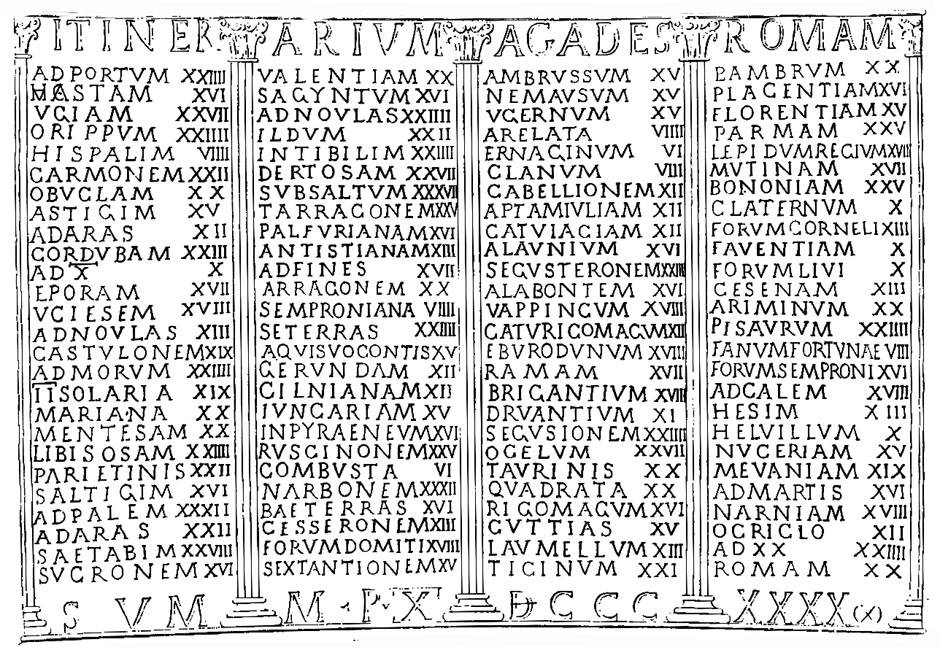 ITINERARIVM AGADES ROMAM
ADPORTVM XXIIII
HASTAM XVI
VGIAM XXVII
ORIPPVM XXIIII
HISPALIM VIIII
CARMONEM XXII
OBVCLAM XX
ASTIGIM XV
ADARAS XII
CORDVBAM XXIII
AD X X
EPORAM XVII
VCIESEM XVIII
ADNOVLAS XIII
CASTVLONEM XIX
ADMORVM XXIIII
IISOLARIA XIX
MARIANA XX
MENTESAM XX
LIBISOSAM XXIIII
PARIETINIS XXII
SALTIGIM XVI
ADPALEM XXXII
ADARAS XXII
SAETABIM XXVIII
SVCRONEM XVI
VALENTIAM XX
SAGYNTVM XVI
ADNOVLAS XXIIII
ILDVM XXII
INTIBILIM XXIIII
DERTOSAM XXVII
SVBSALTVM XXXVII
TARRAGONEM XXV
PALFVRIANAM XVI
ANTISTIANAM XIII
ADFINES XVII
ARRAGONEM XX
SEMPRONIANA VIIII
SETERRAS XXIIII
AQVISVOCONTIS XV
GERVNDAM XII
CILNIANAM XII
IVNCARIAM XV
INPYRAENEVM XVI
RVSCINONEM XXV
COMBVSTA VI
NARBONEM XXXII
BAETERRAS XVI
CESSERONEM XIII
FORVMDOMITI XVIII
SEXTANTIONEM XV
AMBRVSSVM XV
NEMAVSVM XV
VGERNVM XV
ARELATA VIIII
ERNAGINVM VI
GLANVM VIII
CABELLIONEM XII
APTAMIVLIAM XII
CATVIACIAM XII
ALAVNIVM XVI
SEGVSTERONEM XXIIII
ALABONTEM XVI
VAPPINCVM XVIII
CATVRIGOMAGVM XII
EBVRODVNVM XVIII
RAMAM XVII
BRIGANTIVM XVIII
DRVANTIVM XI
SEGVSIONEM XXIIII
OCELVM XXVII
TAVRINIS XX
QVADRATA XX
RIGOMAGVM XVI
CVTTIAS XV
LAVMELLVM XIII
TICINVM XXI
LAMBRVM XX
PLACENTIAM XVI
FLORENTIAM XV
PARMAM XXV
LEPIDVMREGIVM XVIII
MVTINAM XVII
BONONIAM XXV
CLATERNVM X
FORVMCORNELI XIII
FAVENTIAM X
FORVMLIVI X
CESENAM XIII
ARIMINVM XX
PISAVRVM XXIIII
FANVMFORTVNAE VIII
FORVMSEMPRONI XVI
ADCALEM XVIII
HESIM XIII
HELVILLVM X
NVCERIAM XV
MEVANIAM XIX
ADMARTIS XVI
NARNIAM XVIII
OCRICLO XII
AD XX XXIIII
ROMAM XX
SVM M·P·X DCCCXXXX(X)